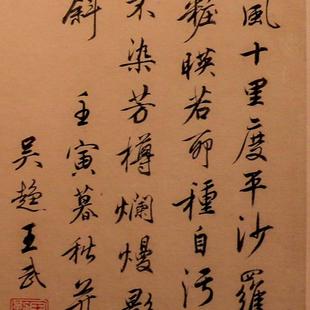 風十里度平沙羅
粧暎若耶種自污
不染芳樽爛熳影
斜
壬寅暮秋並
吳趨王武